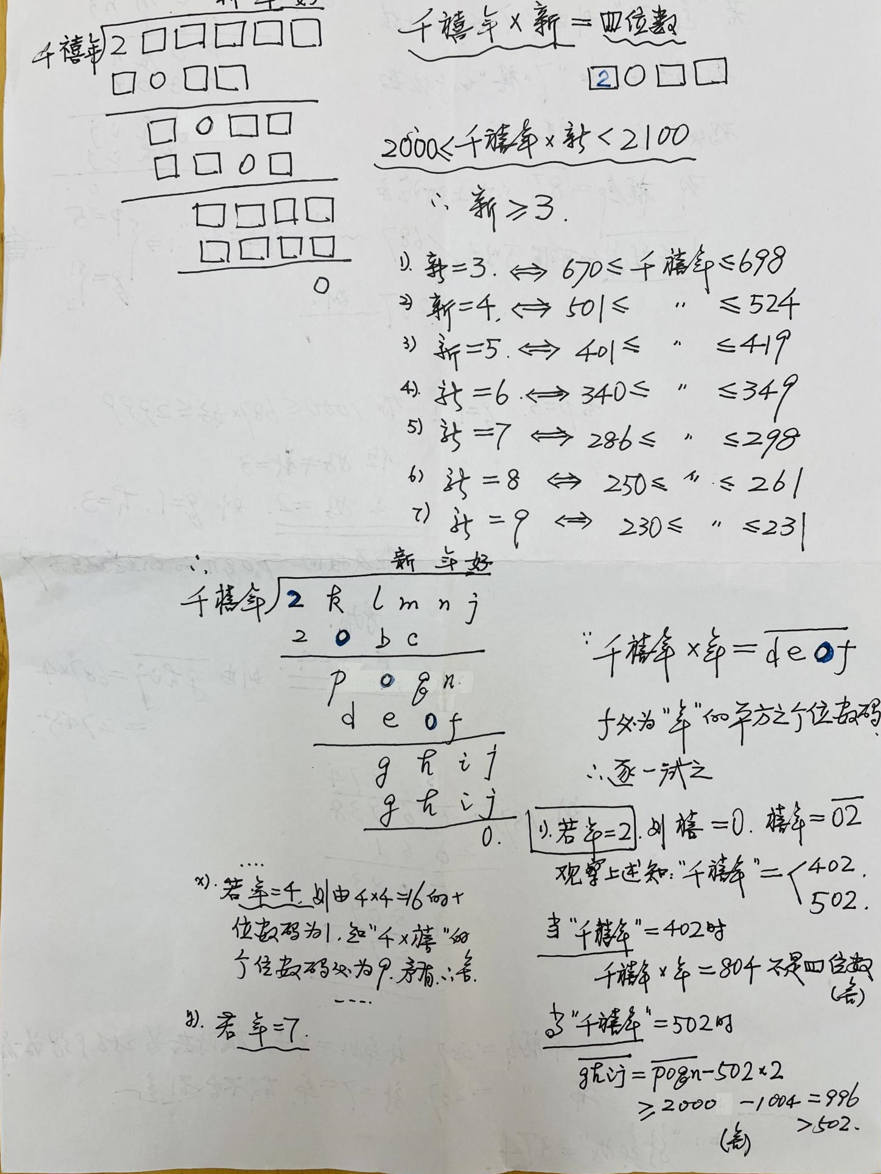 新年好
千禧年)2□□□□□
□0□□
□0□□
□□0□
□□□□
□□□□
0
千禧年×新=四位数
2 0□□
2000≤千禧年×新<2100
∴新≥3.
1).新=3.⇔670≤千禧年≤698
2)新=4.⇔501≤ 〃 ≤524
3)新=5.⇔401≤ 〃 ≤419
4).新=6.⇔340≤ 〃 ≤349
5)新=7⇔286≤ 〃 ≤298
6)新=8⇔250≤ 〃 ≤261
7)新=9⇔230≤ 〃 ≤231
∴ 新年好
千禧年)2 k l m n j
2 0 b c
p 0 q n
d e 0 f
g h i j
g h i j
0.
∵千禧年×年=de0f
f必为"年"的平方之个位数码.
∴逐一试之
1).若年=2.则禧=0.禧年=02
观察上述知:"千禧年"=<402.
502.
当"千禧年"=402时
千禧年×年=804不是四位数
(舍)
当"千禧年"=502时
ghij=p0qn-502×2
≥2000-1004=996
>502.
(舍)
....
x).若年=4.则由4×4=16的十
位数码为1.知"4×禧"的
个位数码必为9.矛盾.∴舍.
....
y).若年=7.